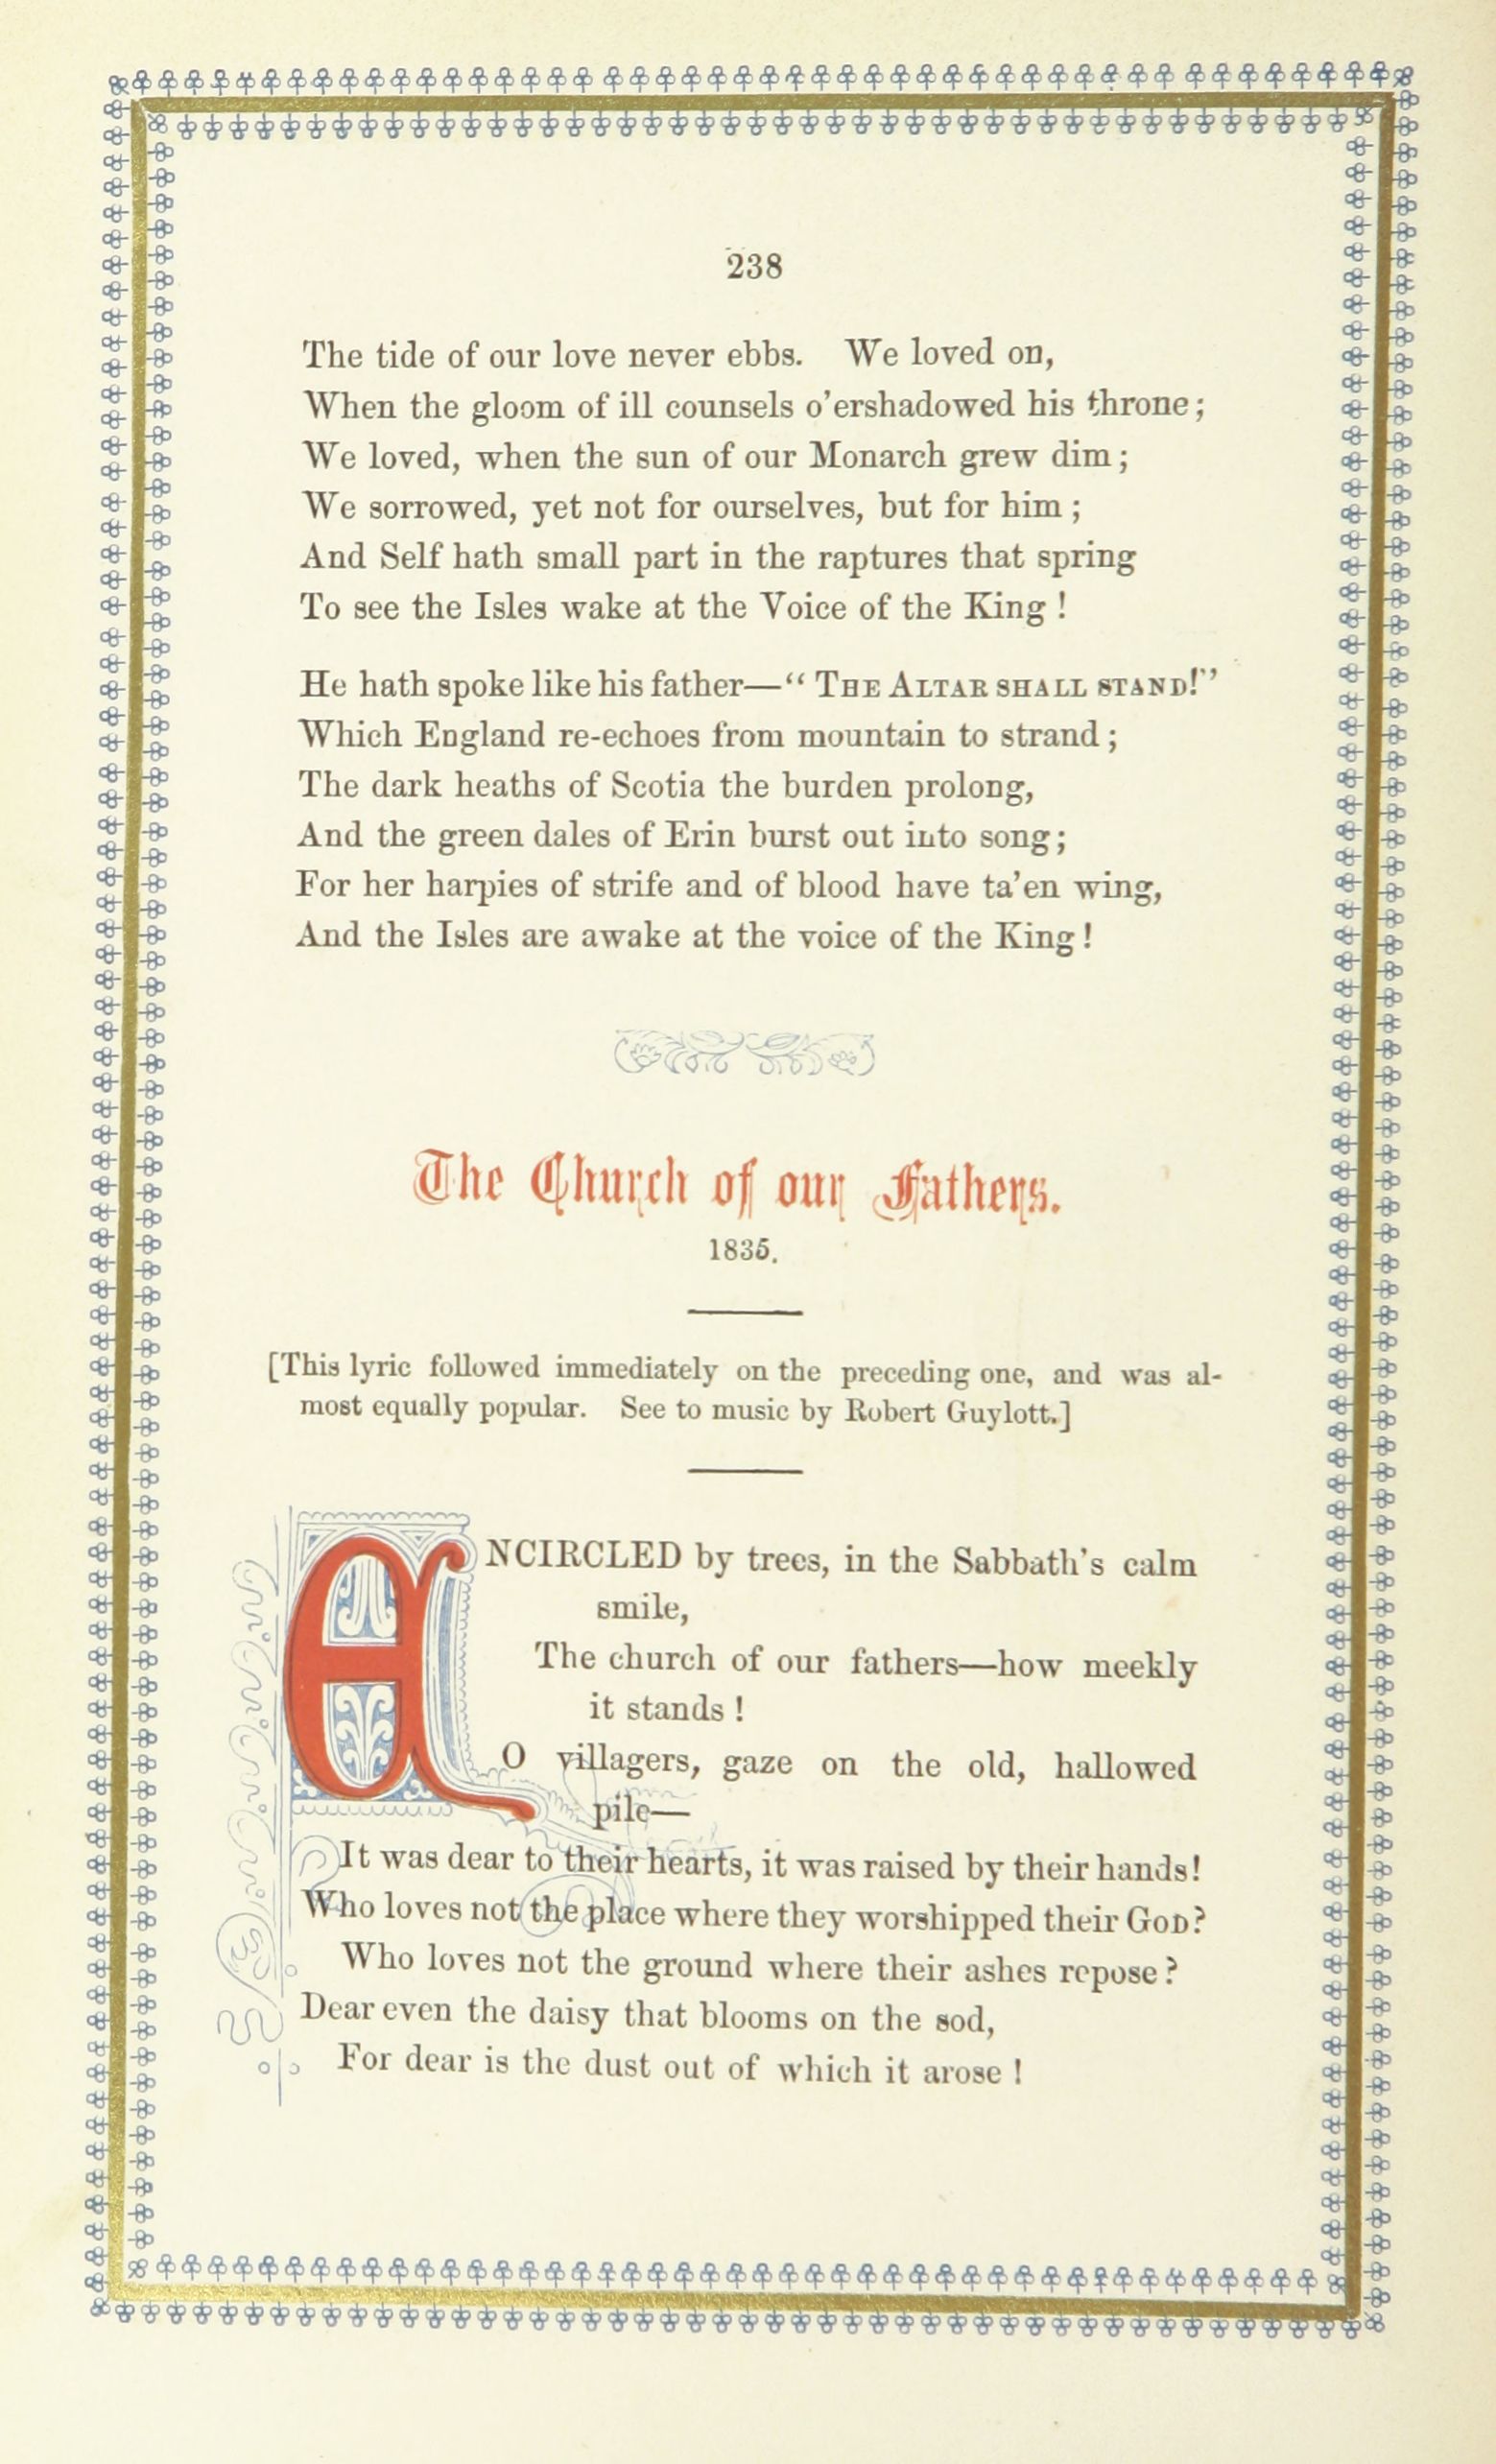 238
The tide of our love never ebbs. We loved on,
When the gloom of ill counsels o'ershadowed his throne;
We loved, when the sun of our Monarch grew dim;
We sorrowed, yet not for ourselves, but for him;
And Self hath small part in the raptures that spring
To see the Isles wake at the Voice of the King!
He hath spoke like his father—"THE ALTAR SHALL STAND!"
Which England re-echoes from mountain to strand;
The dark heaths of Scotia the burden prolong,
And the green dales of Erin burst out into song;
For her harpies of strife and of blood have ta'en wing,
And the Isles are awake at the voice of the King!
The Church of our Fathers.
1835.
[This lyric followed immediately on the preceding one, and was al-
most equally popular. See to music by Robert Guylott.]
ENCIRCLED by trees, in the Sabbath's calm
smile,
The church of our fathers—how meekly
it stands!
O villagers, gaze on the old, hallowed
pile—
It was dear to their hearts, it was raised by their hands!
Who loves not the place where they worshipped their GOD?
Who loves not the ground where their ashes repose?
Dear even the daisy that blooms on the sod,
For dear is the dust out of which it arose!